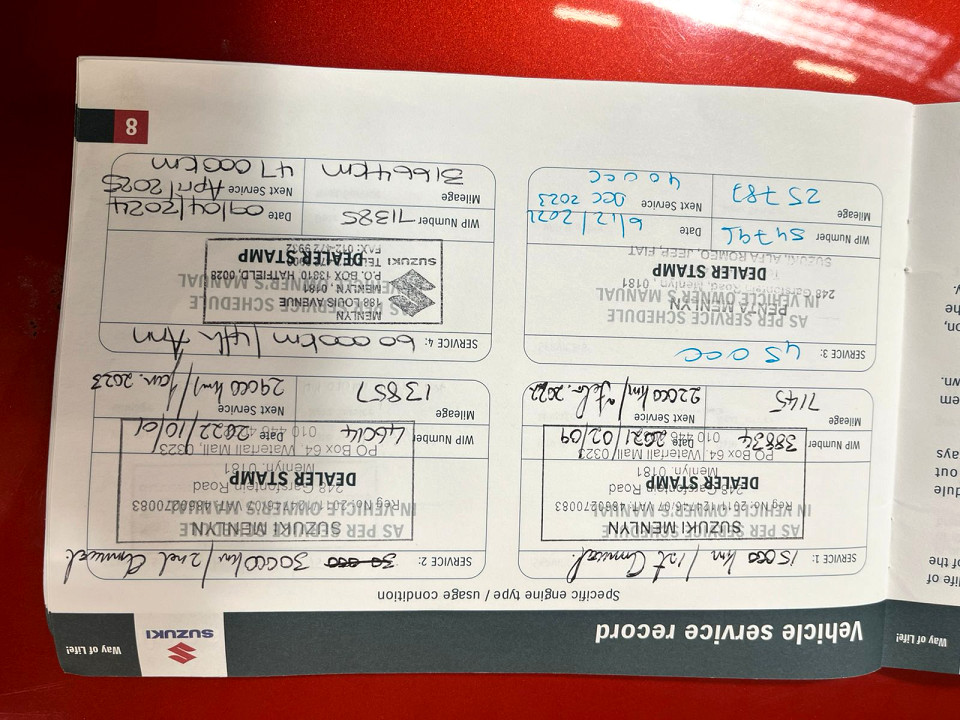 Vehicle service record
SUZUKI
Way of Life!
Specific engine type / usage condition
SERVICE 1: 15000 km / 1st Annual.
AS PER SERVICE SCHEDULE
IN VEHICLE OWNER'S MANUAL
SUZUKI MENLYN
Reg No: 2011/124726/07 VAT: 4861270083
248 Garstfontein Road
DEALER STAMP
Menlyn, 0181
PO Box 64, Waterfall Mall, 0323
WIP Number 38834
Date 2021/02/09
Mileage 7145
Next Service 22000 km / Feb. 2022
SERVICE 2: 30 000 30000 km / 2nd Annual
AS PER SERVICE SCHEDULE
IN VEHICLE OWNER'S MANUAL
SUZUKI MENLYN
248 Garstfontein Road
DEALER STAMP
Menlyn, 0181
PO Box 64, Waterfall Mall, 0323
WIP Number 46014
Date 2022/10/01
Mileage 13857
Next Service 29000 km / Jan. 2023
SERVICE 3: 45 000
AS PER SERVICE SCHEDULE
IN VEHICLE OWNER'S MANUAL
PENTA MENLYN
248 Garstfontein Road, Menlyn, 0181
DEALER STAMP
SUZUKI, ALFA ROMEO, JEEP, FIAT
WIP Number
Date 6/12/2022
Mileage 25 787
Next Service Dec 2023
40 000
SERVICE 4: 60 000km / 4th Ann
AS PER SERVICE SCHEDULE
IN VEHICLE OWNER'S MANUAL
SUZUKI
MENLYN
188 LOUIS AVENUE
MENLYN, 0181
P.O. BOX 13310 HATFIELD, 0028
DEALER STAMP
FAX: 012-472 9932
WIP Number 71385
Date 09/04/2024
Mileage 31664km
Next Service April 2025
47 000km
8
Way of Life!